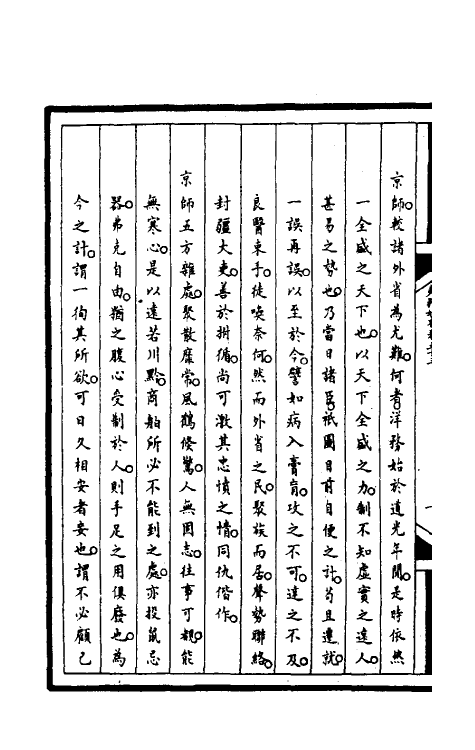 京師。較諸外省為尤難。何者。洋務始於道光年間。是時依然
一全盛之天下也。以天下全盛之力。制不知虛實之遠人。
甚易之勢也。乃當日諸臣。祇圖目前自便之計。茍且遷就。
一誤再誤。以至於今。譬如病入膏肓。攻之不可。達之不及。
良醫束手。徒喚奈何。然而外省之民。聚族而居。聲勢聯絡。
封疆大吏。善於拊循。尚可激其忠憤之情。同仇偕作。
京師五方雜處。聚散靡常。風鶴倐驚。人無固志。往事可覩。能
無寒心。是以遠若川黔。商舶所必不能到之處。亦投鼠忌
器。弗克自由。猶之腹心受制於人。則手足之用俱廢也。為
今之計。謂一徇其所欲。可日久相安者妄也。謂不必顧己